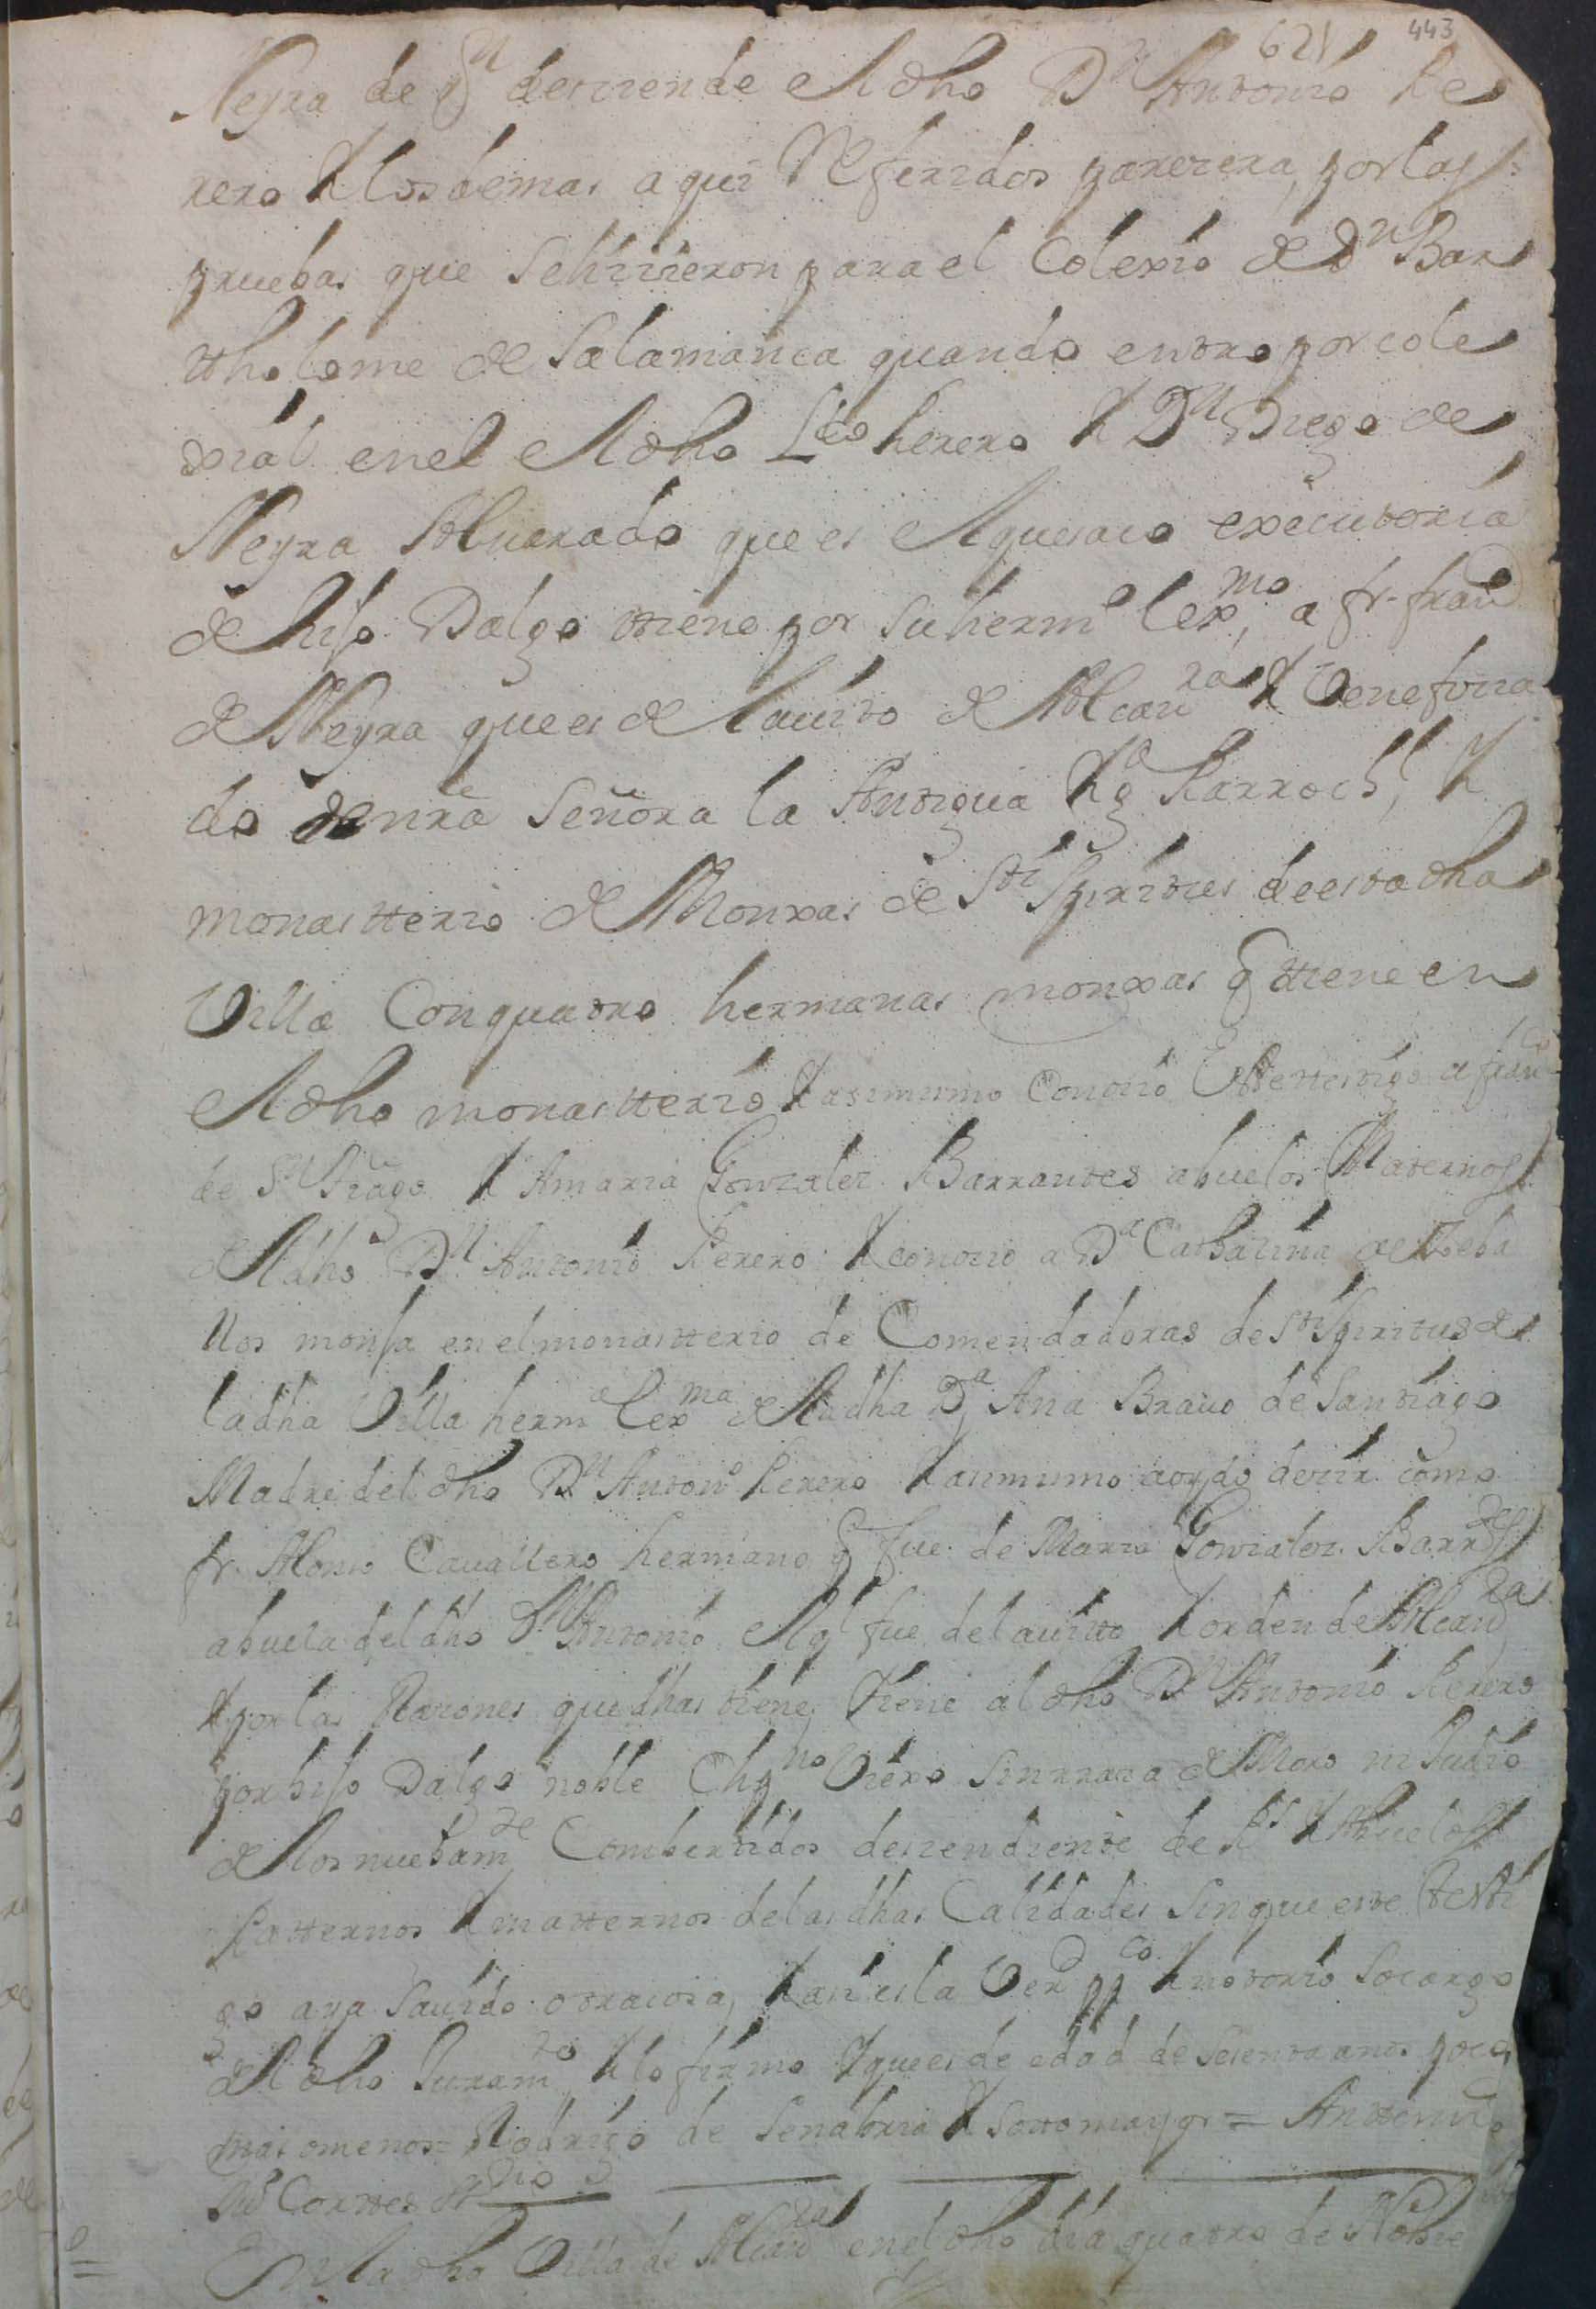 621 443
Neyra de qn desciende el dho Dn Antonio Re
rero Y los demas aqui Referidos parecera, por las
pruebas que se hicieron para el Colexio de Dn Bar
tholome de Salamanca quando entro por cole
xial en el el dho Ldo herero Y Dn Diego de
Neyra Albarado que es el que saco executoria
de hijo Dalgo tiene por su hermo lexmo, a fr. franco
de Neyra que es de el auito de Alcanra Y Benefizia
do de nra Señora la Antigua Parrochl, Y
monasterio de Monxas de Sti Spiritus de esta dha
Villa Con quatro hermanas monxas q tiene en
el dho monasterio Y asimismo Conozio Este testigo a franco
de Sn tiago Y A maria Gonzalez Barrantes abuelos Maternos
del dho Dn Antonio Rerero Y conozio a Da Catharina de Zeba
llos monja en el monasterio de Comendadoras de Sti Spiritus de
la dha Villa herma lexma de la dha Da Ana Brauo de Santiago
Madre del dho Dn Antono Rerero Y asimismo a oydo decir como
fr. Alonso Cauallero hermano q fue de Maria Gonzalez Barrdes
abuela del dho Dn Antonio el ql fue del auito Y orden de Alcanra
Y por las Razones que dhas tiene, tiene al dho Dn Antonio Rerero
por hijo Dalgo noble Chpno Viexo sin rraza de Moro ni Judio
de los nuebamte Combertidos descendiente de Ps Y Abuelos
Paternos Y maternos de las dhas Calidades sin que este testi
go aya sauido otra cosa, Y asi es la Verd ppco Y notorio so cargo
del dho Juramto, Y lo firmo Y que es de edad de sesenta anos poco
mas o menos = Rodrigo de Senabria Y sotomayor = Antemi
Cortes
En la dha Villa de Alcanra en el dho dia quatro de Nobre